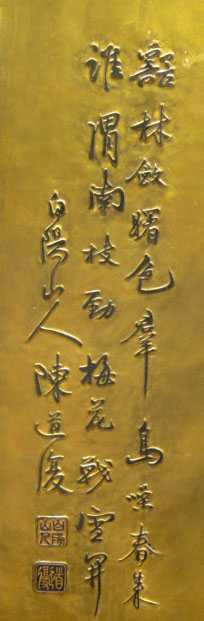 露林敛曙色羣鳥噪春來
誰謂南枝勁梅花戰雪開
白陽山人陳道復
白陽山人
道復